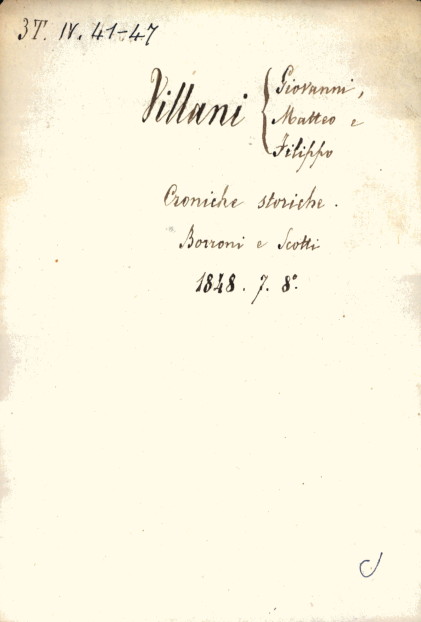 3T. IV. 41-47
Villani { Giovanni,
Matteo e
Filippo
Croniche storiche.
Borroni e Scotti
1848. 7. 8°.